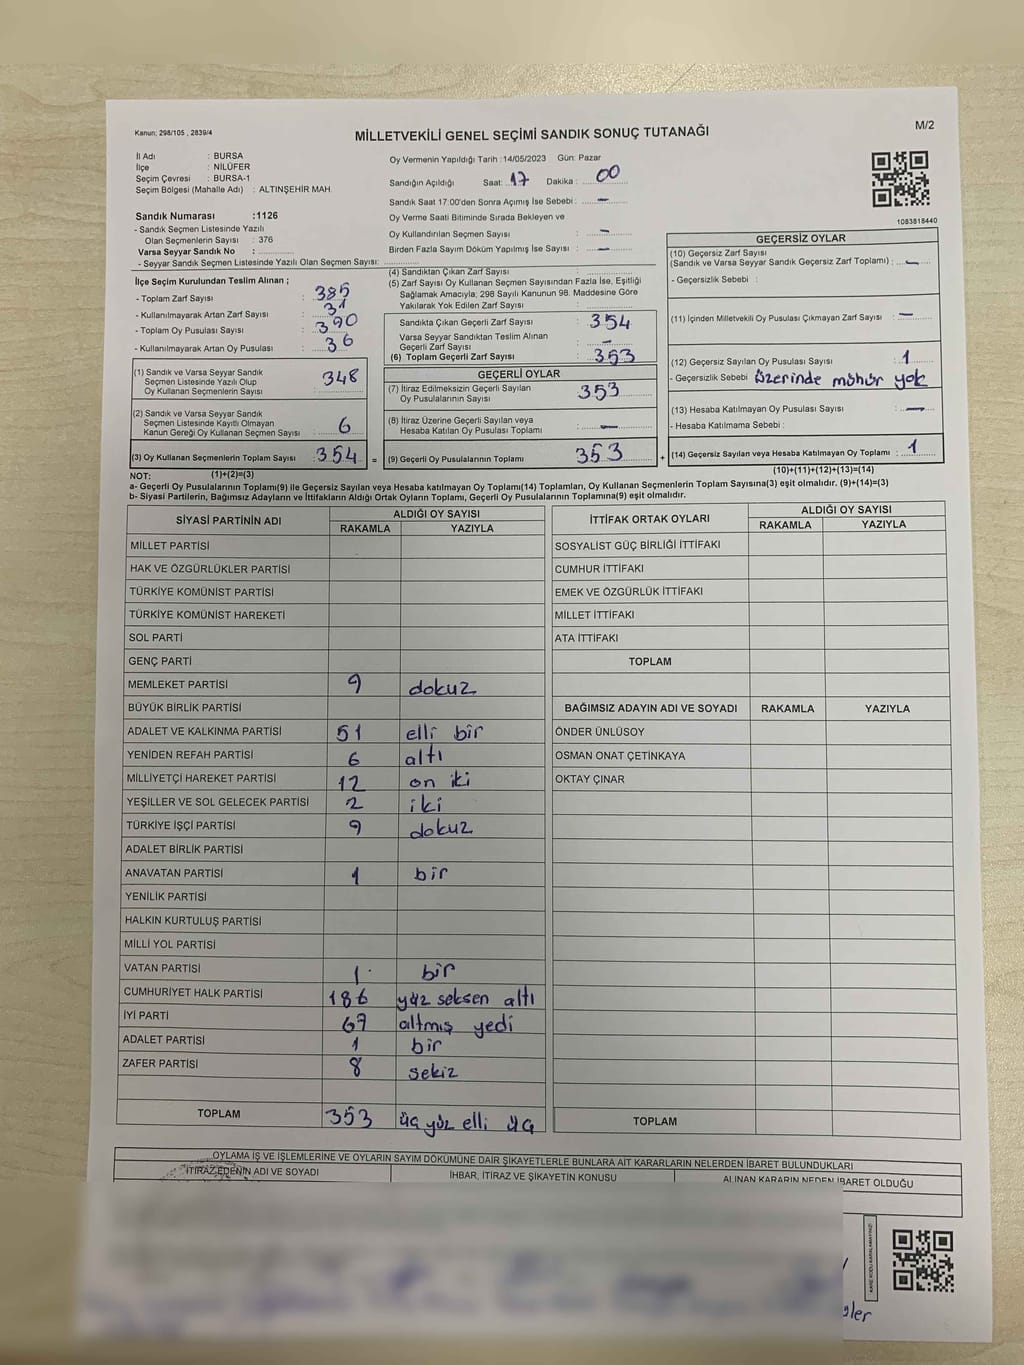 Kanun; 298/105 , 2839/4
MİLLETVEKİLİ GENEL SEÇİMİ SANDIK SONUÇ TUTANAĞI
M/2
İl Adı : BURSA
İlçe : NİLÜFER
Seçim Çevresi : BURSA-1
Seçim Bölgesi (Mahalle Adı) : ALTINŞEHİR MAH.
Sandık Numarası :1126
- Sandık Seçmen Listesinde Yazılı
Olan Seçmenlerin Sayısı : 376
Varsa Seyyar Sandık No :
- Seyyar Sandık Seçmen Listesinde Yazılı Olan Seçmen Sayısı:
İlçe Seçim Kurulundan Teslim Alınan ;
- Toplam Zarf Sayısı : 385
- Kullanılmayarak Artan Zarf Sayısı : 31
- Toplam Oy Pusulası Sayısı : 390
- Kullanılmayarak Artan Oy Pusulası : 36
(1) Sandık ve Varsa Seyyar Sandık
Seçmen Listesinde Yazılı Olup
Oy Kullanan Seçmenlerin Sayısı : 348
(2) Sandık ve Varsa Seyyar Sandık
Seçmen Listesinde Kayıtlı Olmayan
Kanun Gereği Oy Kullanan Seçmen Sayısı : 6
(3) Oy Kullanan Seçmenlerin Toplam Sayısı : 354 =
Oy Vermenin Yapıldığı Tarih : 14/05/2023 Gün: Pazar
Sandığın Açıldığı Saat: 17 Dakika : 00
Sandık Saat 17:00'den Sonra Açımış İse Sebebi : –
Oy Verme Saati Bitiminde Sırada Bekleyen ve
Oy Kullandırılan Seçmen Sayısı : –
Birden Fazla Sayım Döküm Yapılmış İse Sayısı : –
(4) Sandıktan Çıkan Zarf Sayısı :
(5) Zarf Sayısı Oy Kullanan Seçmen Sayısından Fazla İse, Eşitliği
Sağlamak Amacıyla; 298 Sayılı Kanunun 98. Maddesine Göre
Yakılarak Yok Edilen Zarf Sayısı :
Sandıkta Çıkan Geçerli Zarf Sayısı : 354
Varsa Seyyar Sandıktan Teslim Alınan
Geçerli Zarf Sayısı : –
(6) Toplam Geçerli Zarf Sayısı : 353
GEÇERLİ OYLAR
(7) İtiraz Edilmeksizin Geçerli Sayılan
Oy Pusulalarının Sayısı : 353
(8) İtiraz Üzerine Geçerli Sayılan veya
Hesaba Katılan Oy Pusulası Toplamı : –
(9) Geçerli Oy Pusulalarının Toplamı : 353 +
1083818440
GEÇERSİZ OYLAR
(10) Geçersiz Zarf Sayısı
(Sandık ve Varsa Seyyar Sandık Geçersiz Zarf Toplamı) : –
- Geçersizlik Sebebi :
(11) İçinden Milletvekili Oy Pusulası Çıkmayan Zarf Sayısı : –
(12) Geçersiz Sayılan Oy Pusulası Sayısı : 1
- Geçersizlik Sebebi : üzerinde mühür yok
(13) Hesaba Katılmayan Oy Pusulası Sayısı : –
- Hesaba Katılmama Sebebi :
(14) Geçersiz Sayılan veya Hesaba Katılmayan Oy Toplamı : 1
NOT: (1)+(2)=(3) (10)+(11)+(12)+(13)=(14)
a- Geçerli Oy Pusulalarının Toplamı(9) ile Geçersiz Sayılan veya Hesaba katılmayan Oy Toplamı(14) Toplamları, Oy Kullanan Seçmenlerin Toplam Sayısına(3) eşit olmalıdır. (9)+(14)=(3)
b- Siyasi Partilerin, Bağımsız Adayların ve İttifakların Aldığı Ortak Oyların Toplamı, Geçerli Oy Pusulalarının Toplamına(9) eşit olmalıdır.
SİYASİ PARTİNİN ADI ALDIĞI OY SAYISI
RAKAMLA YAZIYLA
MİLLET PARTİSİ
HAK VE ÖZGÜRLÜKLER PARTİSİ
TÜRKİYE KOMÜNİST PARTİSİ
TÜRKİYE KOMÜNİST HAREKETİ
SOL PARTİ
GENÇ PARTİ
MEMLEKET PARTİSİ 9 dokuz
BÜYÜK BİRLİK PARTİSİ
ADALET VE KALKINMA PARTİSİ 51 elli bir
YENİDEN REFAH PARTİSİ 6 altı
MİLLİYETÇİ HAREKET PARTİSİ 12 on iki
YEŞİLLER VE SOL GELECEK PARTİSİ 2 iki
TÜRKİYE İŞÇİ PARTİSİ 9 dokuz
ADALET BİRLİK PARTİSİ
ANAVATAN PARTİSİ 1 bir
YENİLİK PARTİSİ
HALKIN KURTULUŞ PARTİSİ
MİLLİ YOL PARTİSİ
VATAN PARTİSİ 1 bir
CUMHURİYET HALK PARTİSİ 186 yüz seksen altı
İYİ PARTİ 67 altmış yedi
ADALET PARTİSİ 1 bir
ZAFER PARTİSİ 8 sekiz
TOPLAM 353 üç yüz elli üç
İTTİFAK ORTAK OYLARI ALDIĞI OY SAYISI
RAKAMLA YAZIYLA
SOSYALİST GÜÇ BİRLİĞİ İTTİFAKI
CUMHUR İTTİFAKI
EMEK VE ÖZGÜRLÜK İTTİFAKI
MİLLET İTTİFAKI
ATA İTTİFAKI
TOPLAM
BAĞIMSIZ ADAYIN ADI VE SOYADI RAKAMLA YAZIYLA
ÖNDER ÜNLÜSOY
OSMAN ONAT ÇETİNKAYA
OKTAY ÇINAR
TOPLAM
OYLAMA İŞ VE İŞLEMLERİNE VE OYLARIN SAYIM DÖKÜMÜNE DAİR ŞİKAYETLERLE BUNLARA AİT KARARLARIN NELERDEN İBARET BULUNDUKLARI
İTİRAZ EDENİN ADI VE SOYADI İHBAR, İTİRAZ VE ŞİKAYETİN KONUSU ALINAN KARARIN NEDEN İBARET OLDUĞU